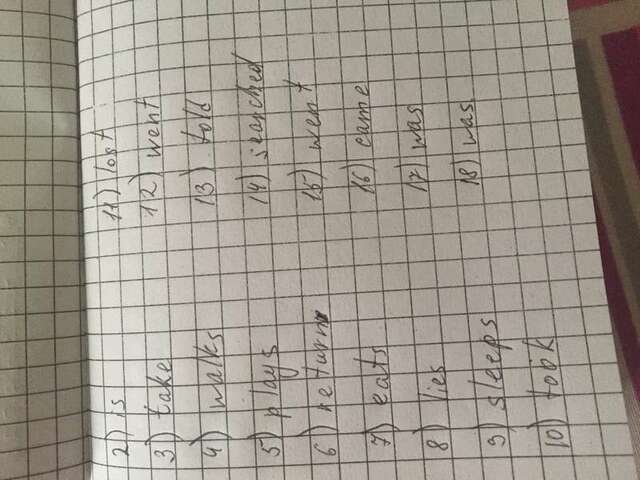 2) is
3) take
4) walks
5) plays
6) return
7) eats
8) lies
9) sleeps
10) took
11) lost
12) went
13) told
14) searched
15) went
16) came
17) was
18) was